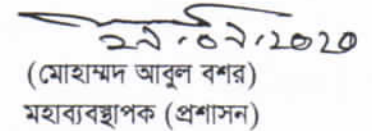 ২৯.০৯.২০২০
(মোহাম্মদ আবুল বশর)
মহাব্যবস্থাপক (প্রশাসন)